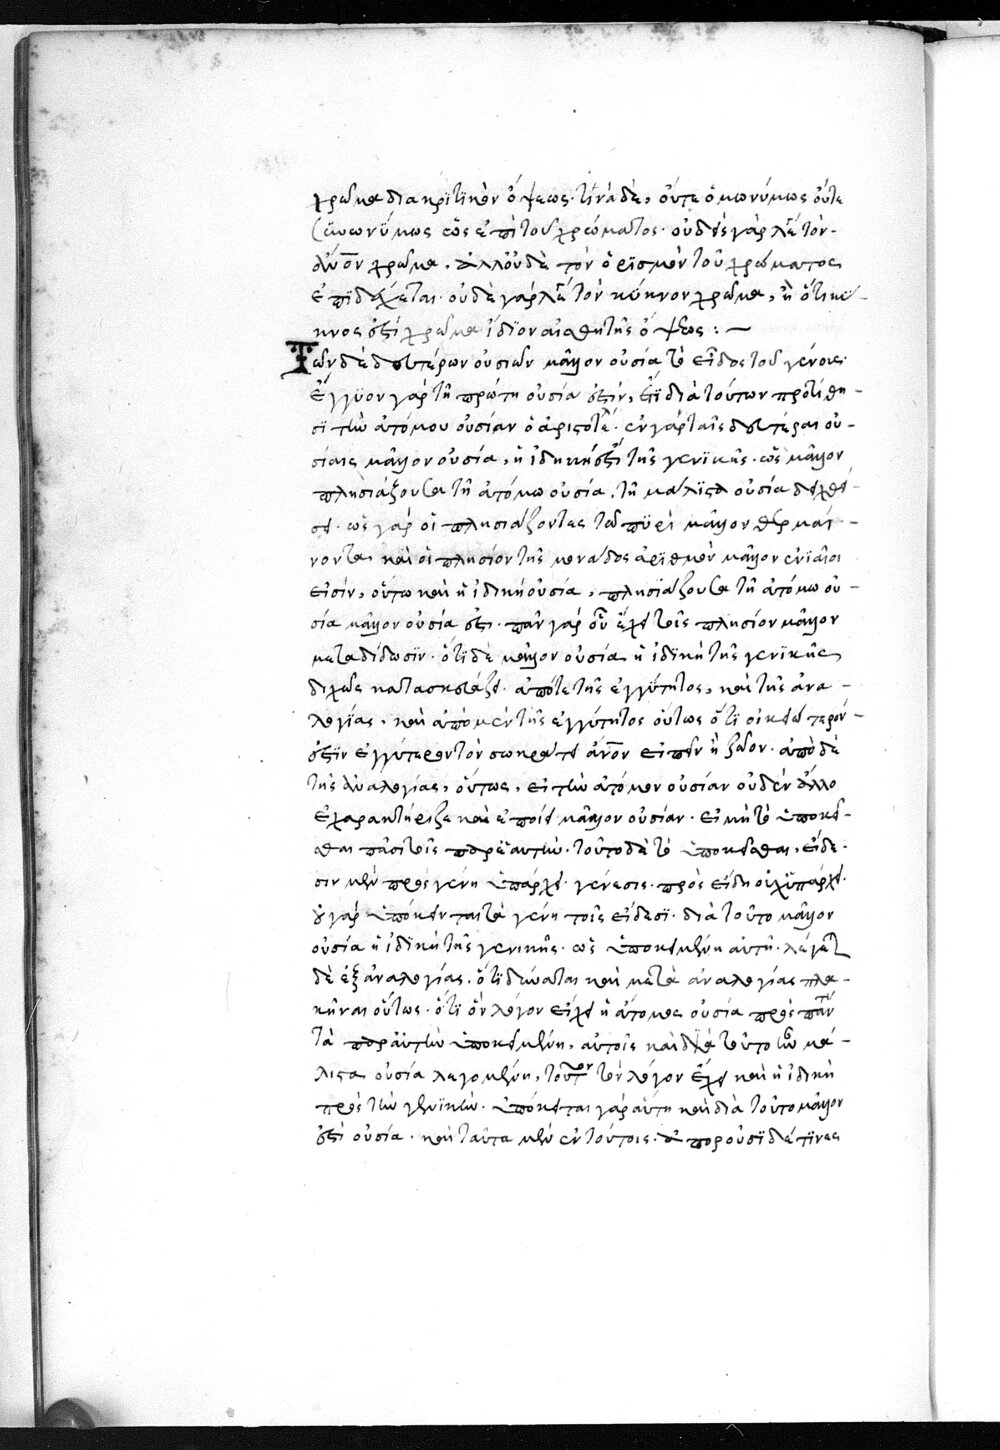 χρῶμα διακρϊτϊκὸν ὄψεως· τϊνὰ δὲ, οὔτε ὁμωνύμως οὔτε
συνωνύμως ὡς ἐπὶ τοῦ χρώματος· οὐδεὶς γὰρ λέγει τὸν
κύκνον χρῶμα, ἀλλ' οὐδὲ τὸν ὁρϊσμὸν τοῦ χρώματος
ἐπϊδέχεται· οὐδὲ γὰρ λέγει τὸν κύκνον χρῶμα, ἢ ὅτι κύ-
κνος ἐστὶ χρῶμα ἴδϊον αἰσθητῆς ὄψεως : ~
Τῶν δὲ δευτέρων οὐσιῶν μᾶλλον οὐσία τὸ εἶδος τοῦ γένους·
ἔγγϋον γὰρ τῇ πρώτη οὐσία ἐστὶν, ἔτϊ διὰ τούτων προτίθη-
σϊ τὴν ἀτόμου οὐσίαν ὁ ἀριστοτέλης· ἐν γὰρ ταῖς δευτέραι οὐ-
σίαις μᾶλλον οὐσία, ἡ ἰδικὴ ἐστὶ τῆς γενϊκῆς· ὡς μᾶλλον
πλησιάζουσα τῇ ἀτόμω οὐσία, τῇ μάλϊστα οὐσία δειχθεί-
ση· ὡς γάρ οἱ πλησιάζοντες τῶ πϋρὶ μᾶλλον θερμαί-
νονται καὶ οἱ πλησίον τῆς μονάδος ἀρϊθμὸν μᾶλλον ἐνιαῖοι
εἰσὶν, οὕτω καὶ ἡ ἰδικὴ οὐσία, πλησϊάζουσα τῇ ἀτόμω οὐ-
σία μᾶλλον οὐσία ἐστι· πᾶν γὰρ οὗ ἔχει τοῖς πλησίον μᾶλλον
μεταδίδωσϊν· ὅτϊ δὲ μᾶλλον οὐσία ἡ ἰδϊκὴ τῆς γενϊκῆς
διχῶς κατασκευάζει· ἀπό τε τῆς ἐγγύτητος, καὶ τῆς ἀνα-
λογίας, καὶ ἀπὸ μὲν τῆς ἐγγύτητος οὕτως ὅτϊ οἰκειώτερόν
ἐστϊν ἐγγύτερον τὸν σωκράτει ἄνθρωπον εἰπεῖν ἢ ζῶον· ἀπὸ δὲ
τῆς ἀναλογίας, οὕτως, εἰ τὴν ἀτόμον οὐσίαν οὐδὲν ἄλλο
ἐχαρακτήριζε καὶ ἐποίει μᾶλλον οὐσίαν· εἰ μὴ τὸ ὑποκεῖ-
σθαι πᾶσι τοῖς παρ' ἑαυτὴν· τοῦτο δὲ τὸ ὑποκεῖσθαι, εἴδε-
σιν μὲν πρὸς γένη ὑπάρχει· γένεσις πρὸς εἴδη οὐχϋπάρχει·
οὐ γὰρ ὑπόκεινται τὰ γένη τοῖς εἴδεσϊ· διὰ τοῦτο μᾶλλον
οὐσία ἡ ἰδϊκὴ τῆς γενικῆς· ὡς ὑποκειμένη αὐτῇ· λέγεται
δὲ ἐξ ἀναλογίας, ὅτϊ δύναται καὶ μετὰ ἀναλογίας πλα-
κῆναι οὕτως· ὅτϊ ὃν λόγον εἴχει ἡ ἄτομος οὐσία πρὸς πάντα
τὰ παρ' αὐτὴν ὑποκειμένη, αὐτοῖς καὶ διὰ τοῦτο ἦν μά-
λιστα οὐσία λεγομένη, τοῦτον τὸν λόγον ἔχει καὶ ἡ ἰδικὴ
πρὸς τὴν γενϊκὴν· ὑπόκειται γὰρ αὕτη καὶ διὰ τοῦτο μᾶλλον
ἐστὶ οὐσία· καὶ ταῦτα μὲν ἐν τούτοις· ἀποροῦσϊ δέ τϊνες